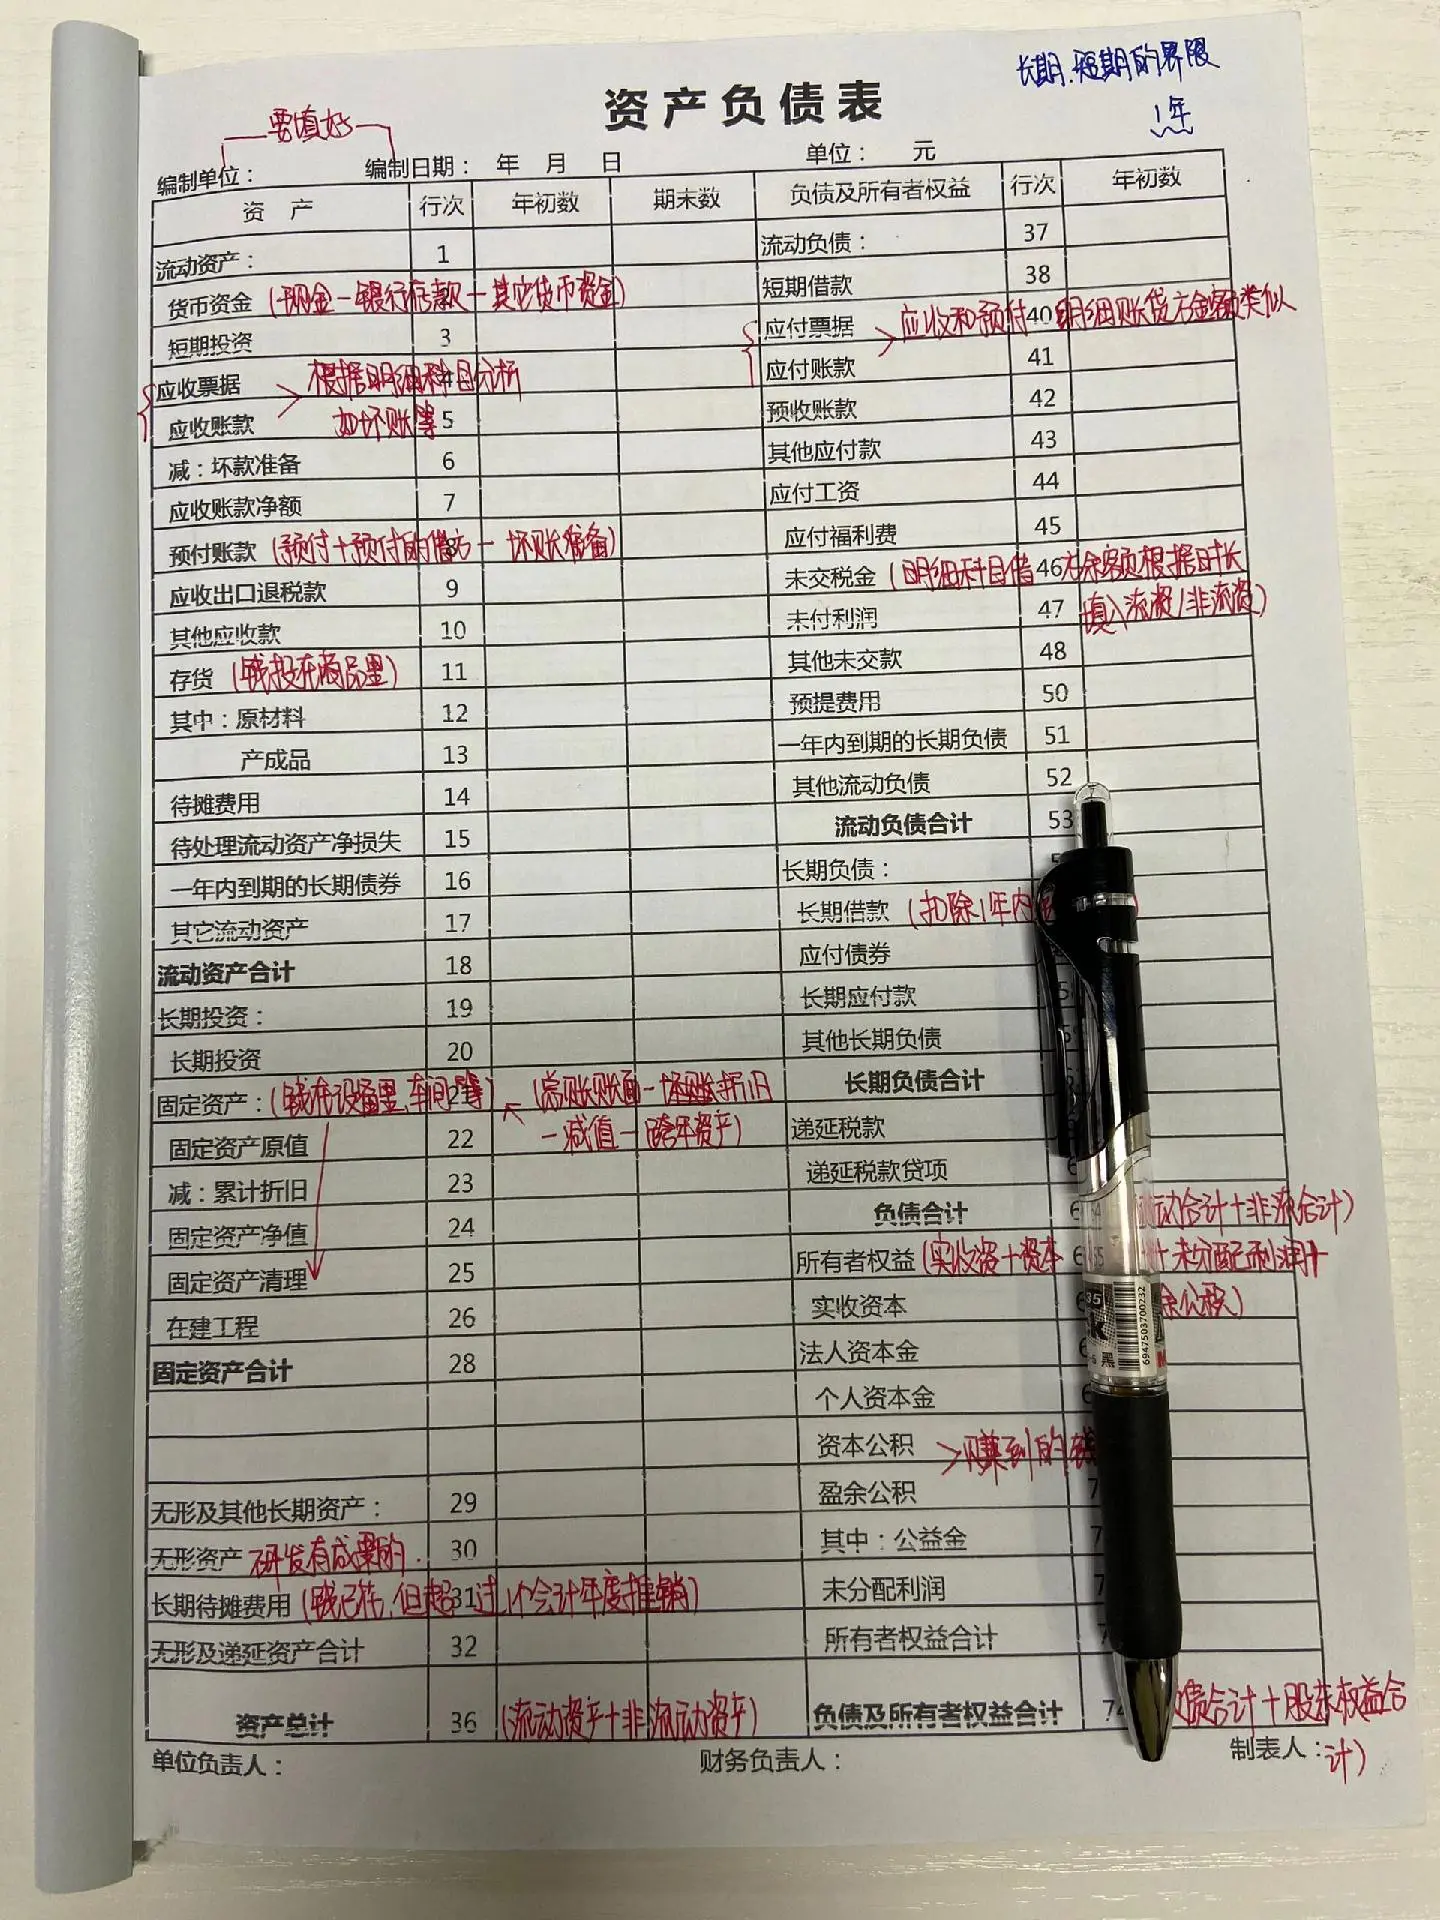 长期.短期的界限
1年
资产负债表
要填好
编制单位： 编制日期： 年 月 日 单位： 元
资 产 行次 年初数 期末数 负债及所有者权益 行次 年初数
流动资产： 1 流动负债： 37
货币资金 (现金-银行存款-其它货币资金) 短期借款 38
短期投资 3 应付票据 40 应收和预付 明细账贷方金额类似
应收票据 4 根据明细科目分析 应付账款 41
应收账款 如坏账等 5 预收账款 42
减：坏款准备 6 其他应付款 43
应收账款净额 7 应付工资 44
预付账款 (预付+预付的借方-坏账准备) 8 应付福利费 45
应收出口退税款 9 未交税金 (明细科目借 46 方余额根据时长
其他应收款 10 未付利润 47 填入流资/非流资)
存货 (钱投在商品里) 11 其他未交款 48
其中：原材料 12 预提费用 50
产成品 13 一年内到期的长期负债 51
待摊费用 14 其他流动负债 52
待处理流动资产净损失 15 流动负债合计 53
一年内到期的长期债券 16 长期负债：
其它流动资产 17 长期借款 (扣除1年内
流动资产合计 18 应付债券
长期投资： 19 长期应付款
长期投资 20 其他长期负债
固定资产： (钱在设备里,车间等) 21 (总账账面-坏账折旧 长期负债合计
固定资产原值 22 -减值-跨年资产) 递延税款
减：累计折旧 23 递延税款贷项
固定资产净值 24 负债合计 动合计+非流合计)
固定资产清理 25 所有者权益 (实收资+资本 +未分配利润+
在建工程 26 实收资本 余公积)
固定资产合计 28 法人资本金
个人资本金
资本公积 赚到的
无形及其他长期资产： 29 盈余公积
无形资产 研发有成果的. 30 其中：公益金
长期待摊费用 (钱已花,但超过1个会计年度摊销) 31 未分配利润
无形及递延资产合计 32 所有者权益合计
资产总计 36 (流动资产+非流动资产) 负债及所有者权益合计 74 债合计+股东权益合
计)
单位负责人： 财务负责人： 制表人：
6947503700232
黑